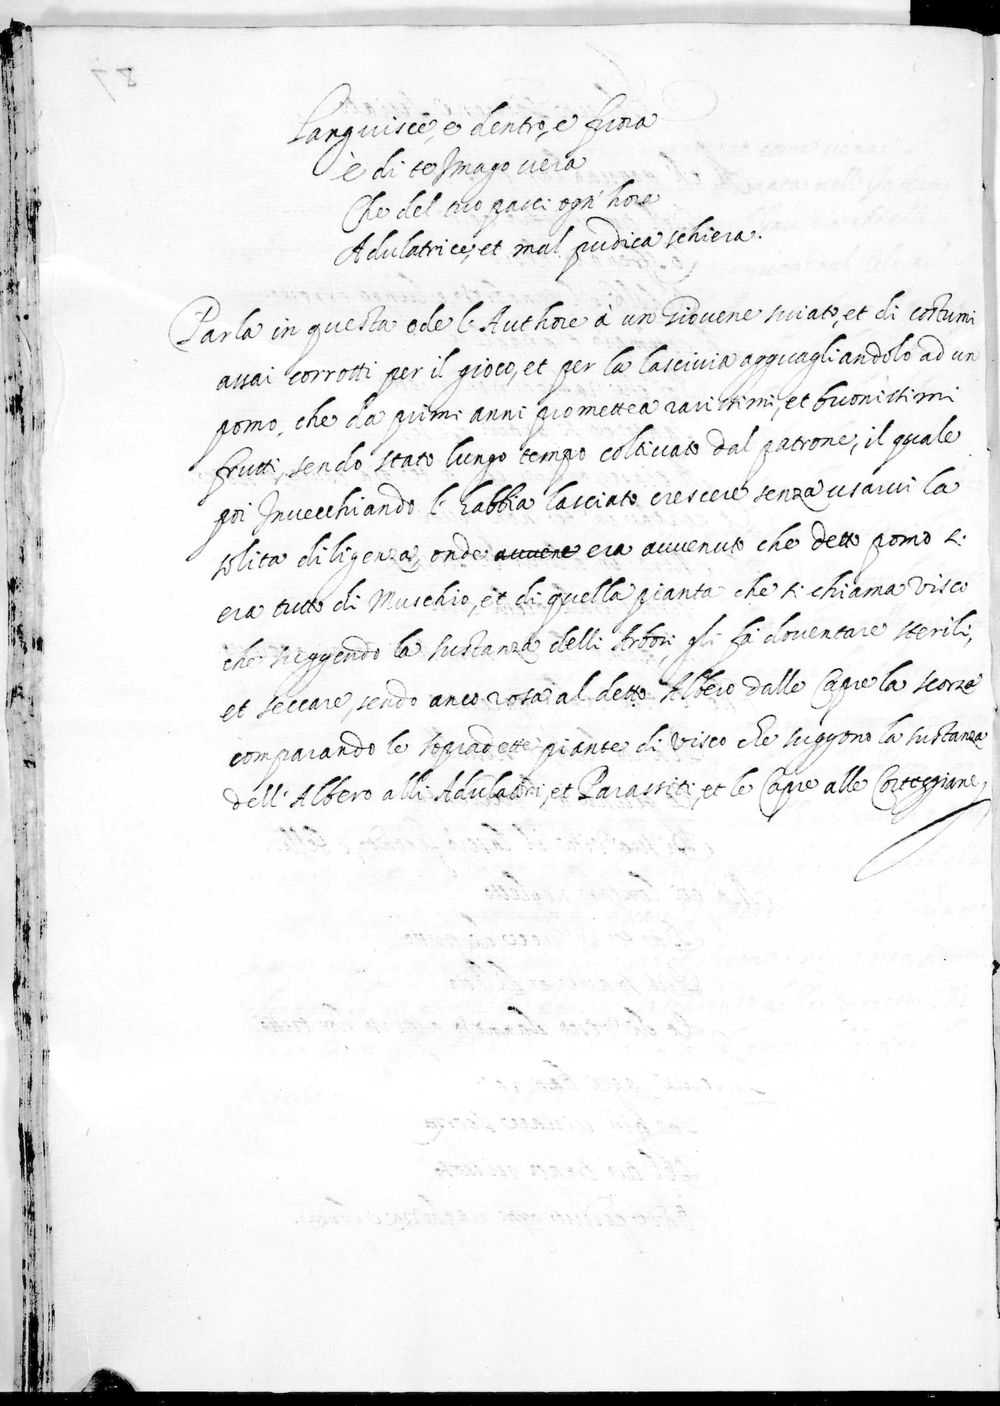 Languisce, e dentro, e fuora
è di te Imago uera
Che del tuo pasci ogn' hora
Adulatrice, et mal pudica schiera.
Parla in questa ode l' Authore à un Giouene suiato, et di costumi
assai corrotti per il gioco, et per la lasciuia agguagliandolo ad un
pomo, che da primi anni promettea rarissimi, et buonissimi
frutti, sendo stato lungo tempo coltiuato dal patrone, il quale
poi Inuecchiando l' habbia lasciato crescere senza usarui la
solita diligenza, onde auuene era auuenuto che detto pomo s'
era tutto di Muschio, et di quella pianta che si chiama visco
che suggendo la sustanza delli Arbori, gli fà douentare sterili,
et seccare, sendo anco rosa al detto Albero dalle Capre la scorza
comparando le sopradette piante di visco che suggono la sustanza
dell' Albero alli Adulatori, et Parassiti, et le Capre alle Corteggiane,